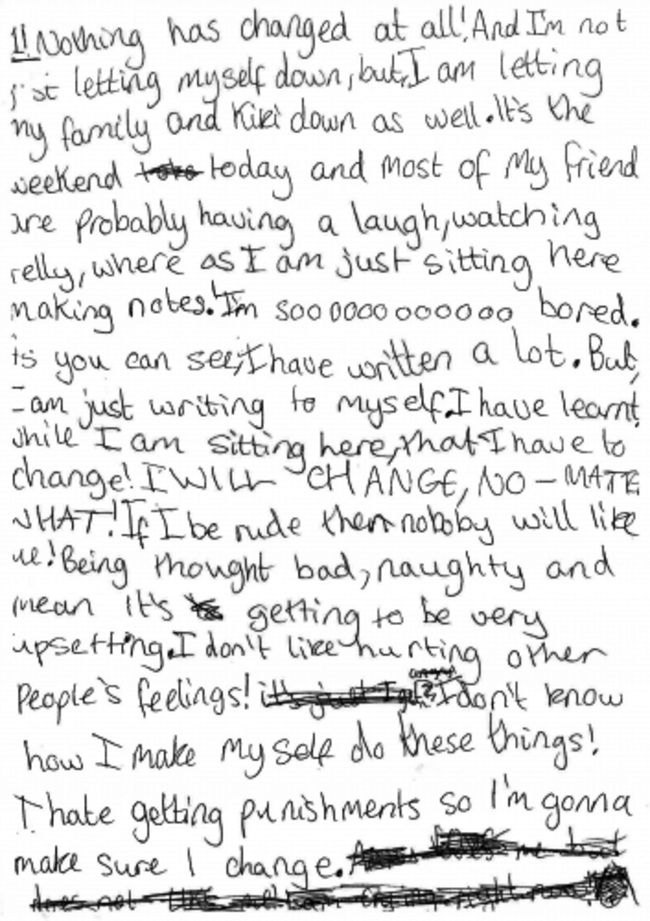 1! Nothing has changed at all! And I'm not
just letting myself down, but, I am letting
my family and Kiki down as well. It's the
weekend today and most of My friend
are probably having a laugh, watching
telly, where as I am just sitting here
making notes! I'm sooooooooooooo bored.
As you can see, I have written a lot. But,
I am just writing to myself. I have learnt
while I am sitting here, that I have to
change! I WILL CHANGE, NO-MATE
WHAT! If I be rude then noboby will like
me! Being thought bad, naughty and
mean it's getting to be very
upsetting. I don't like hurting other
People's feelings! I don't know
how I make my self do these things!
I hate getting punishments so I'm gonna
make sure I change.